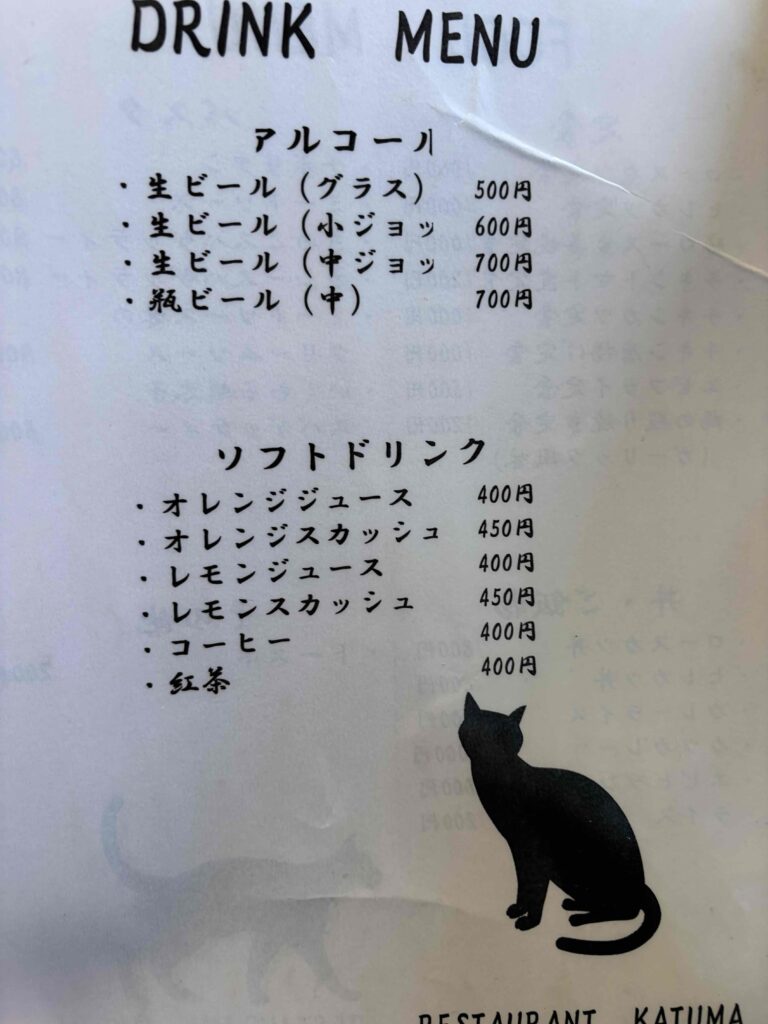 DRINK MENU
アルコール
・生ビール（グラス） 500円
・生ビール（小ジョッ 600円
・生ビール（中ジョッ 700円
・瓶ビール（中） 700円
ソフトドリンク
・オレンジジュース 400円
・オレンジスカッシュ 450円
・レモンジュース 400円
・レモンスカッシュ 450円
・コーヒー 400円
・紅茶 400円
RESTAURANT KATUMA